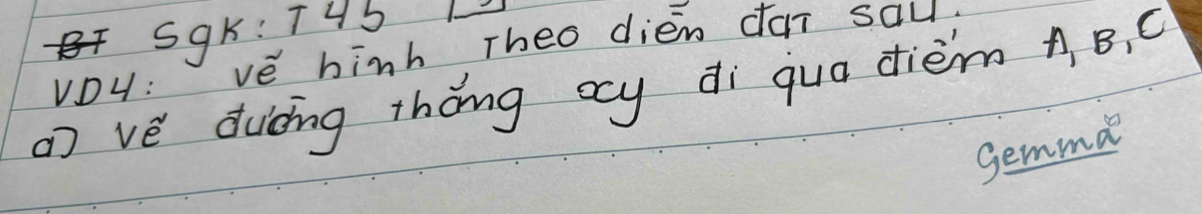 Sgk: T45
VD4: vẽ hình Theo diễn đạT sau.
a) vẽ đường thẳng xy đi qua điểm A, B, C
Gemmă